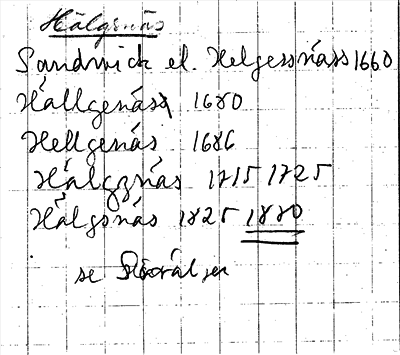 Hälgenäs
Sandwick el. Helgessnäss 1660
Hällgenäss 1680
Hellgenäs 1686
Hälgznäs 1715 1725
Hälgsnäs 1825 1880
se